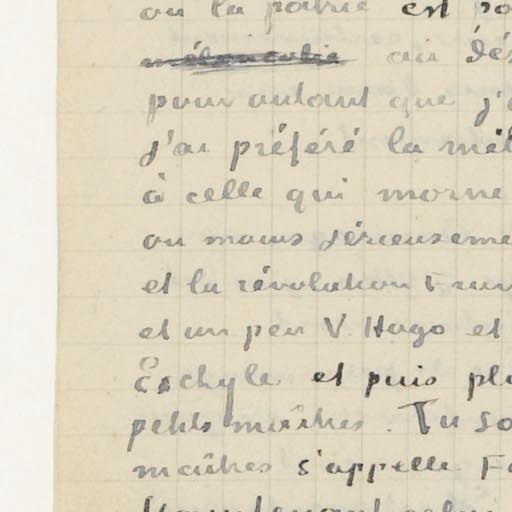 ou la patrie est
mélancolie au dés
pour autant que j'
j'ai préféré la mél
à celle qui morne
ou moins sérieuseme
et la révolution Fran
et un peu V. Hugo et
Eschyle et puis pl
petits maîtres. Tu so
maîtres s'appelle Fa